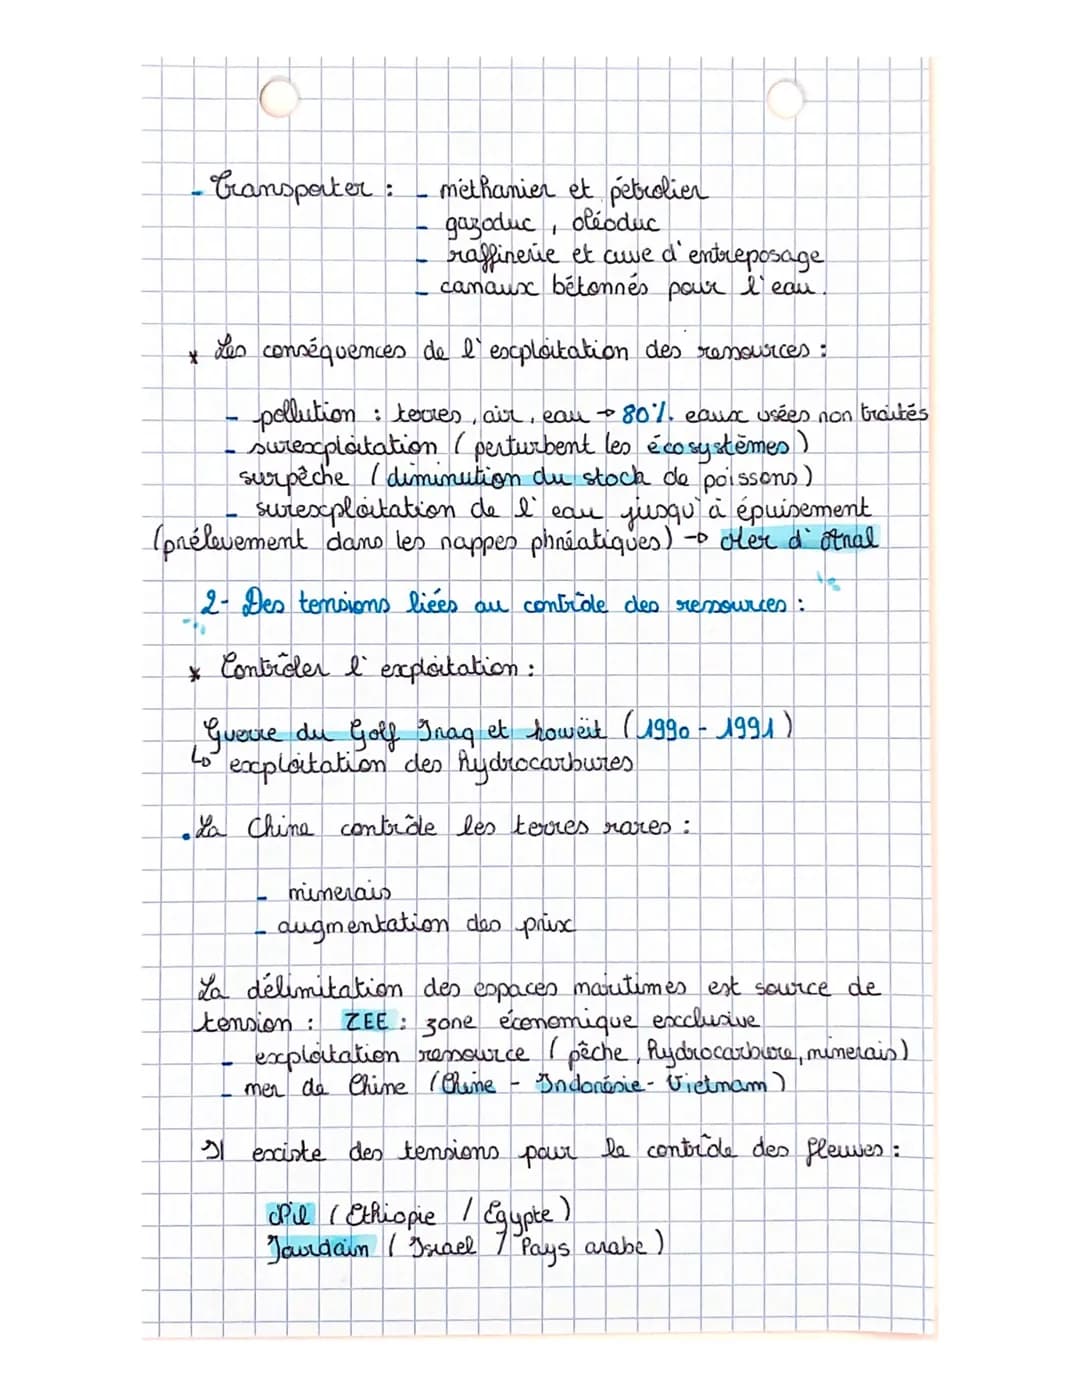 - Transporter : - méthanier et pétrolier
- gazoduc, oléoduc
- raffinerie et cuve d'entreposage
- canaux bétonnés pour l'eau.
* Les conséquences de l'exploitation des ressources :
- pollution : terres, air, eau → 80% eaux usées non traités
- surexploitation ( perturbent les écosystèmes )
surpêche ( diminution du stock de poissons )
- surexploitation de l'eau jusqu'à épuisement
(prélevement dans les nappes phréatiques) → Mer d'Aral
2- Des tensions liées au contrôle des ressources :
* Contrôler l'exploitation :
Guerre du Golf Iraq et koweït ( 1990 - 1991 )
↳ exploitation des hydrocarbures
. La Chine contrôle les terres rares :
- minerais
- augmentation des prix
La délimitation des espaces maritimes est source de
tension : ZEE : zone économique exclusive
- exploitation ressource ( pêche, hydrocarbure, minerais )
- mer de Chine ( Chine - Indonésie - Vietnam )
Il existe des tensions pour le contrôle des fleuves :
Nil ( Ethiopie / Egypte )
Jourdain ( Israel / Pays arabe )